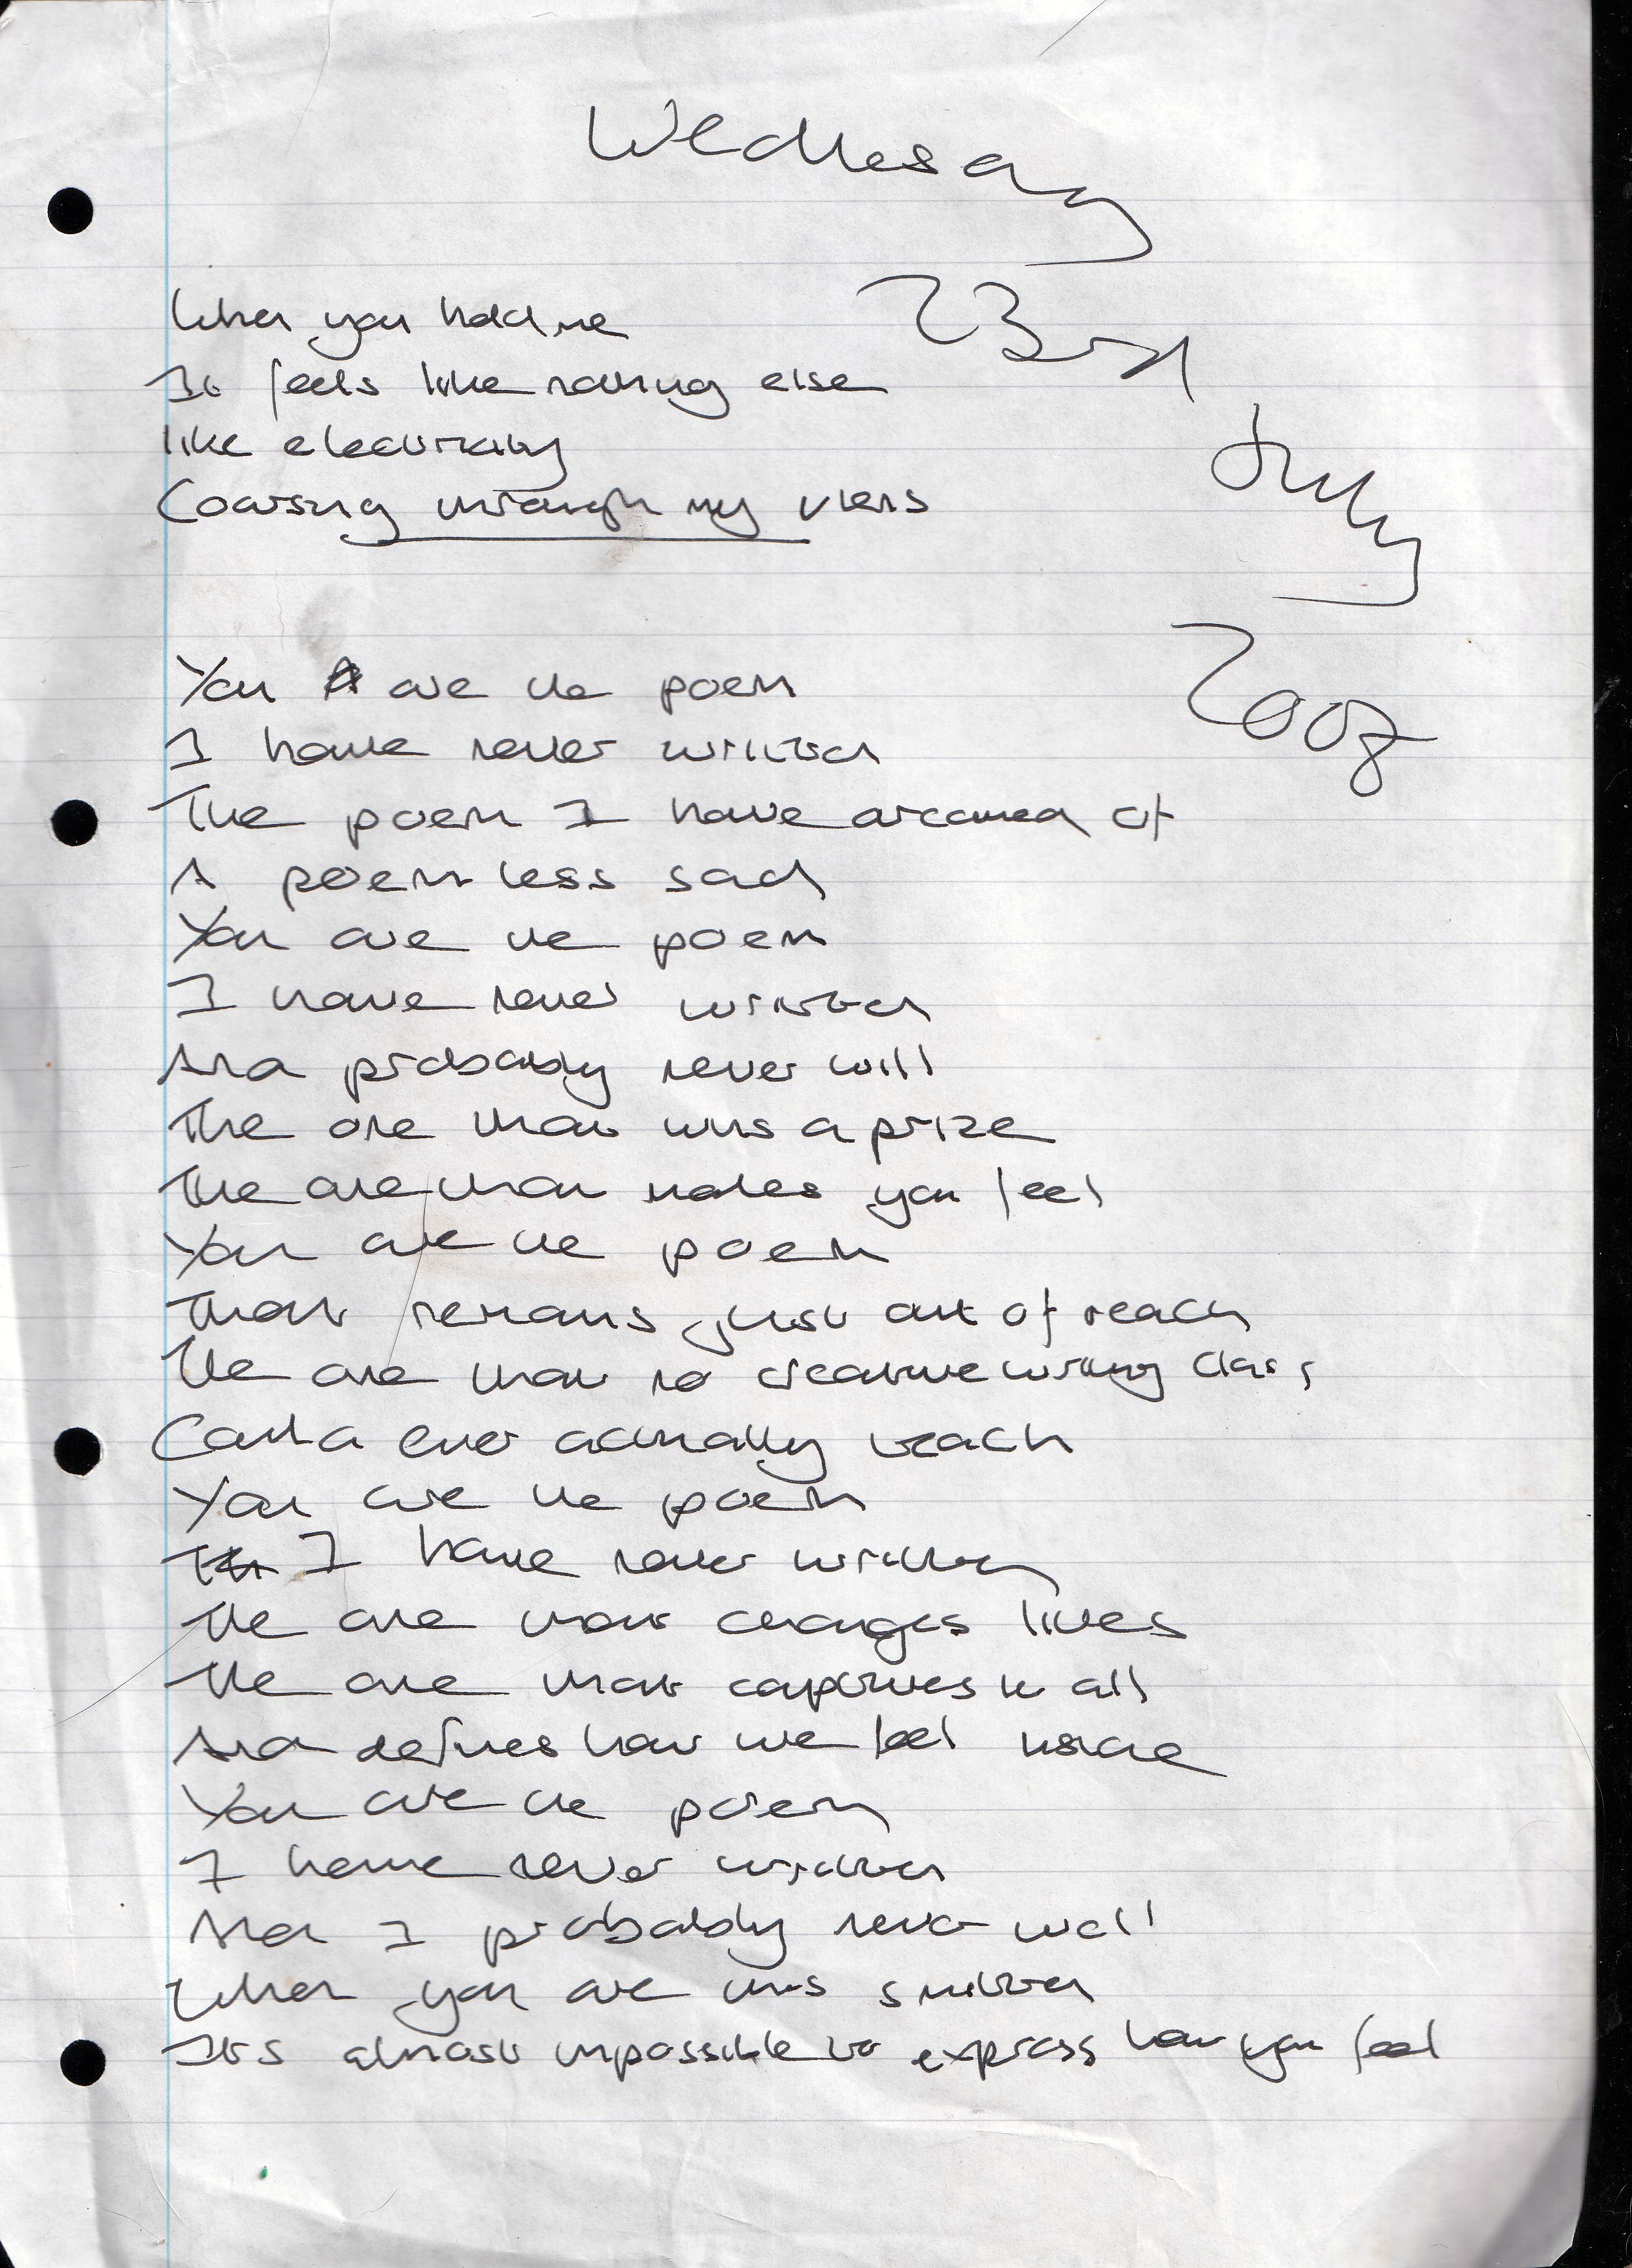 Wednesay
23rd
July
2008
When you hold me
It feels like nothing else
like electricity
Coarsing through my viens
You are the poem
I have never written
The poem I have dreamed of
A poem less sad
You are the poem
I have never written
And probably never will
The one that wins a prize
The one that makes you feel
You are the poem
That remains just out of reach
The one that no creative writing class
Could ever actually teach
You are the poem
I have never written
The one that changes lives
The one that captures it all
And defines how we feel inside
You are the poem
I have never written
And I probably never will
When you are this smitten
Its almost impossible to express how you feel